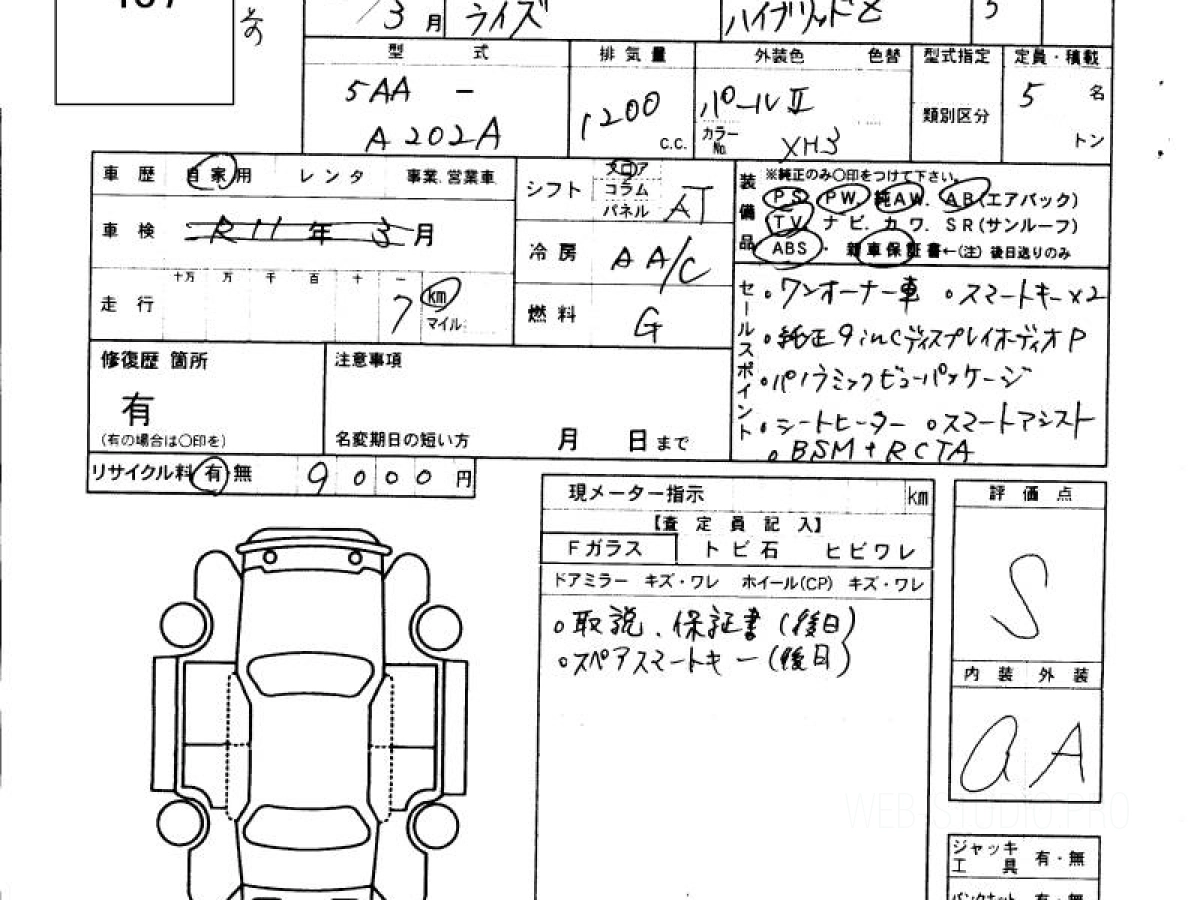 /3月 ライズ ハイブリッドZ 5
型 式 排気量 外装色 色替 型式指定 定員・積載
5AA - 1200 c.c. パールⅡ 類別区分 5 名
A202A カラーNo. XH3 トン
車歴 自家用 レンタ 事業.営業車
車検 R11年 3月
十万 万 千 百 十 一
走行 7 km マイル
シフト フロア コラム パネル AT
冷房 AA/C
燃料 G
装備品 ※純正のみ○印をつけて下さい。
PS. PW. 純AW. AB(エアバック)
TV. ナビ. カワ. SR(サンルーフ)
ABS ・ 新車保証書←(注) 後日送りのみ
セールスポイント
。ワンオーナー車 。スマートキー×2
。純正9incディスプレイオーディオP
。パノラミックビューパッケージ
。シートヒーター 。スマートアシスト
。BSM+RCTA
修復歴 箇所
有
(有の場合は○印を)
注意事項
名変期日の短い方 月 日まで
リサイクル料 有 無 9000 円
現メーター指示 km
【査定員記入】
Fガラス トビ石 ヒビワレ
ドアミラー キズ・ワレ ホイール(CP) キズ・ワレ
。取説、保証書(後日)
。スペアスマートキー(後日)
評価点
S
内装 外装
a A
ジャッキ 工具 有・無
パンクキット 有・無
WEB-STUDIO.PRO